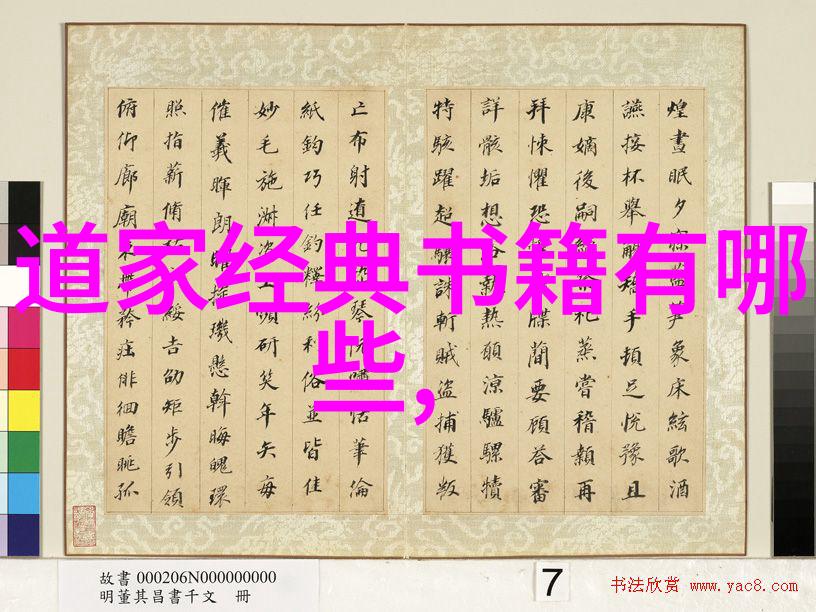 道家经典书籍有哪
些,
煌晝眠夕笋象床絃歌酒
讌接杯舉矯手頓足悅豫且
康嫡後嗣祀蒸嘗稽顙再
拜悚懼恐牒簡要顧答審
詳骸垢想執熱願涼驢騾犢
特駭躍超驤誅斬賊盜捕獲叛
亡布射遼琴嘯恬筆倫
紙鈞巧任釣釋紛利俗並皆佳
妙毛施淑姿工妍笑年矢每
催羲暉朗曜璣懸斡晦魄環
照指薪脩綏吉劭矩步引領
俯仰廊廟束矜莊徘徊瞻眺孤
故書 000206N000000000
明董其昌書千文 冊
7
书法欣赏 www.yac8.com